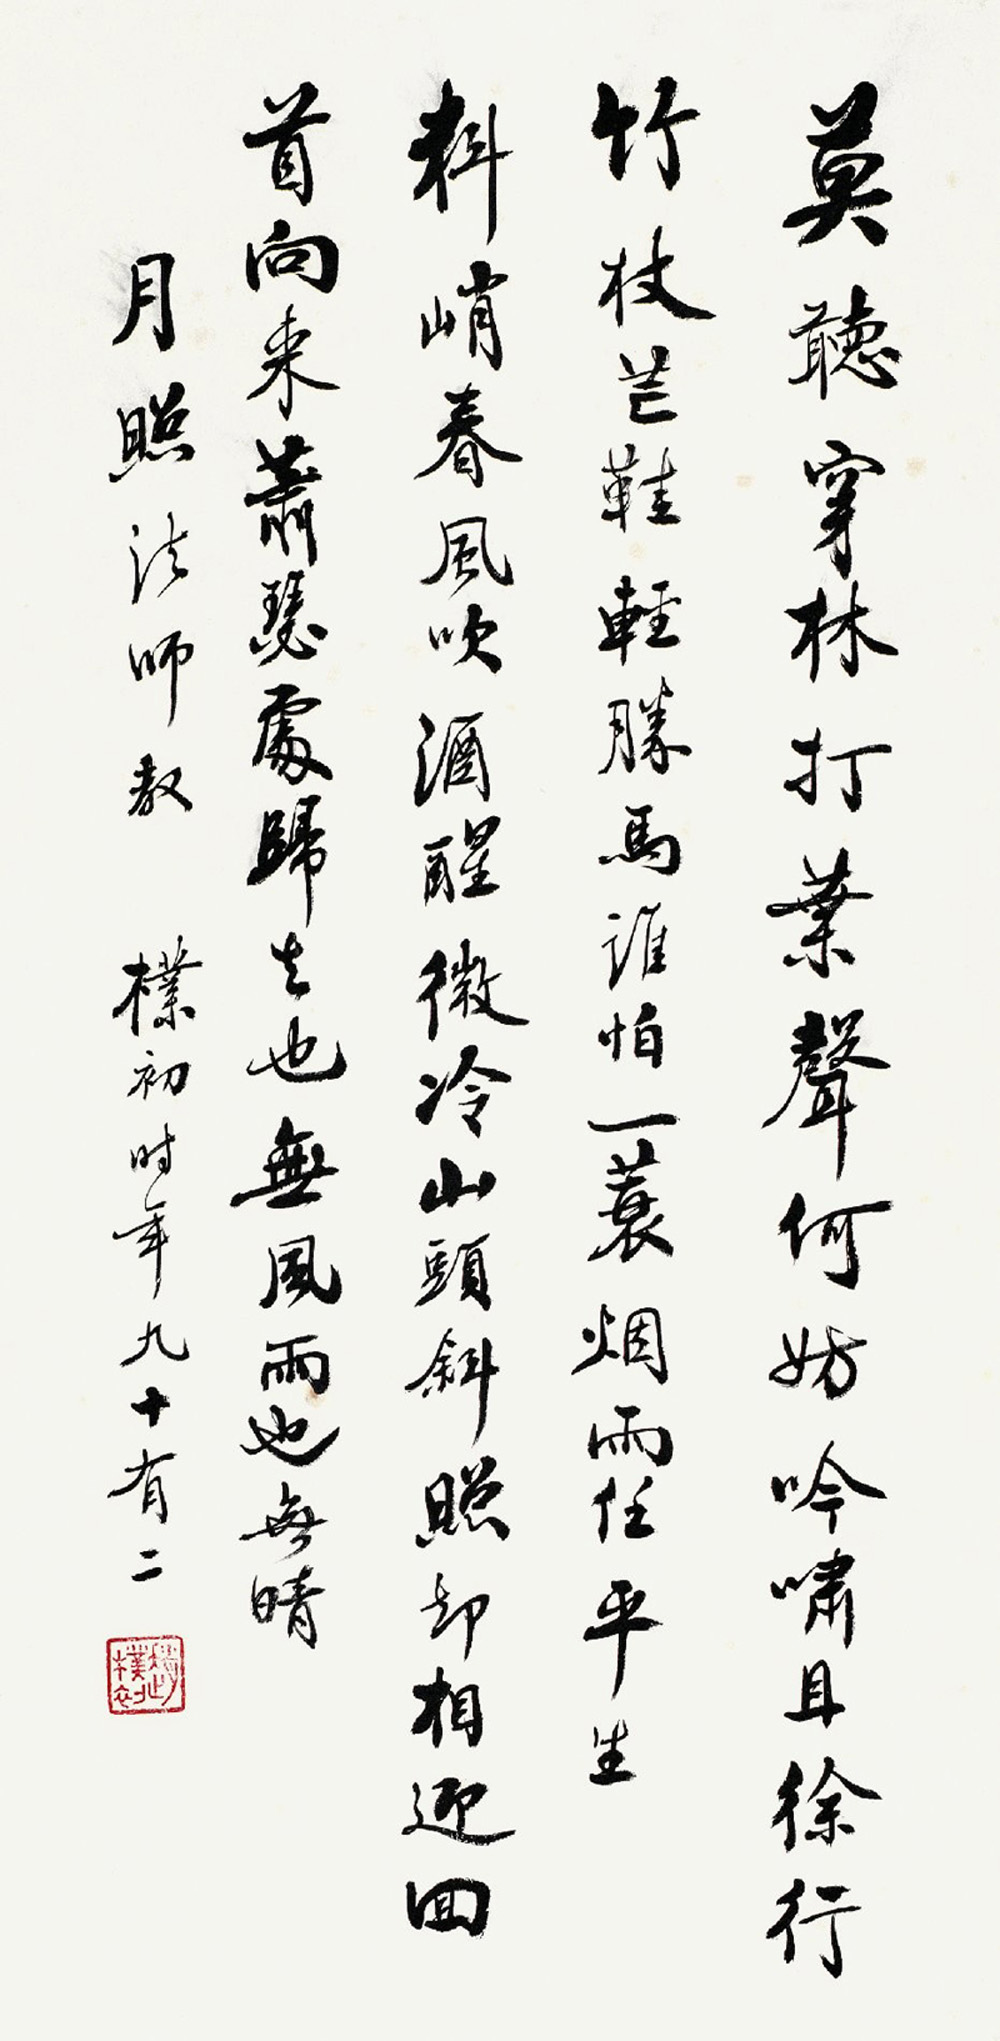 莫聽穿林打葉聲何妨吟嘯且徐行
竹杖芒鞋輕勝馬誰怕一蓑烟雨任平生
料峭春風吹酒醒微冷山頭斜照却相迎回
首向来蕭瑟處歸去也無風雨也無晴
月照法師教
樸初时年九十有二
趙樸初